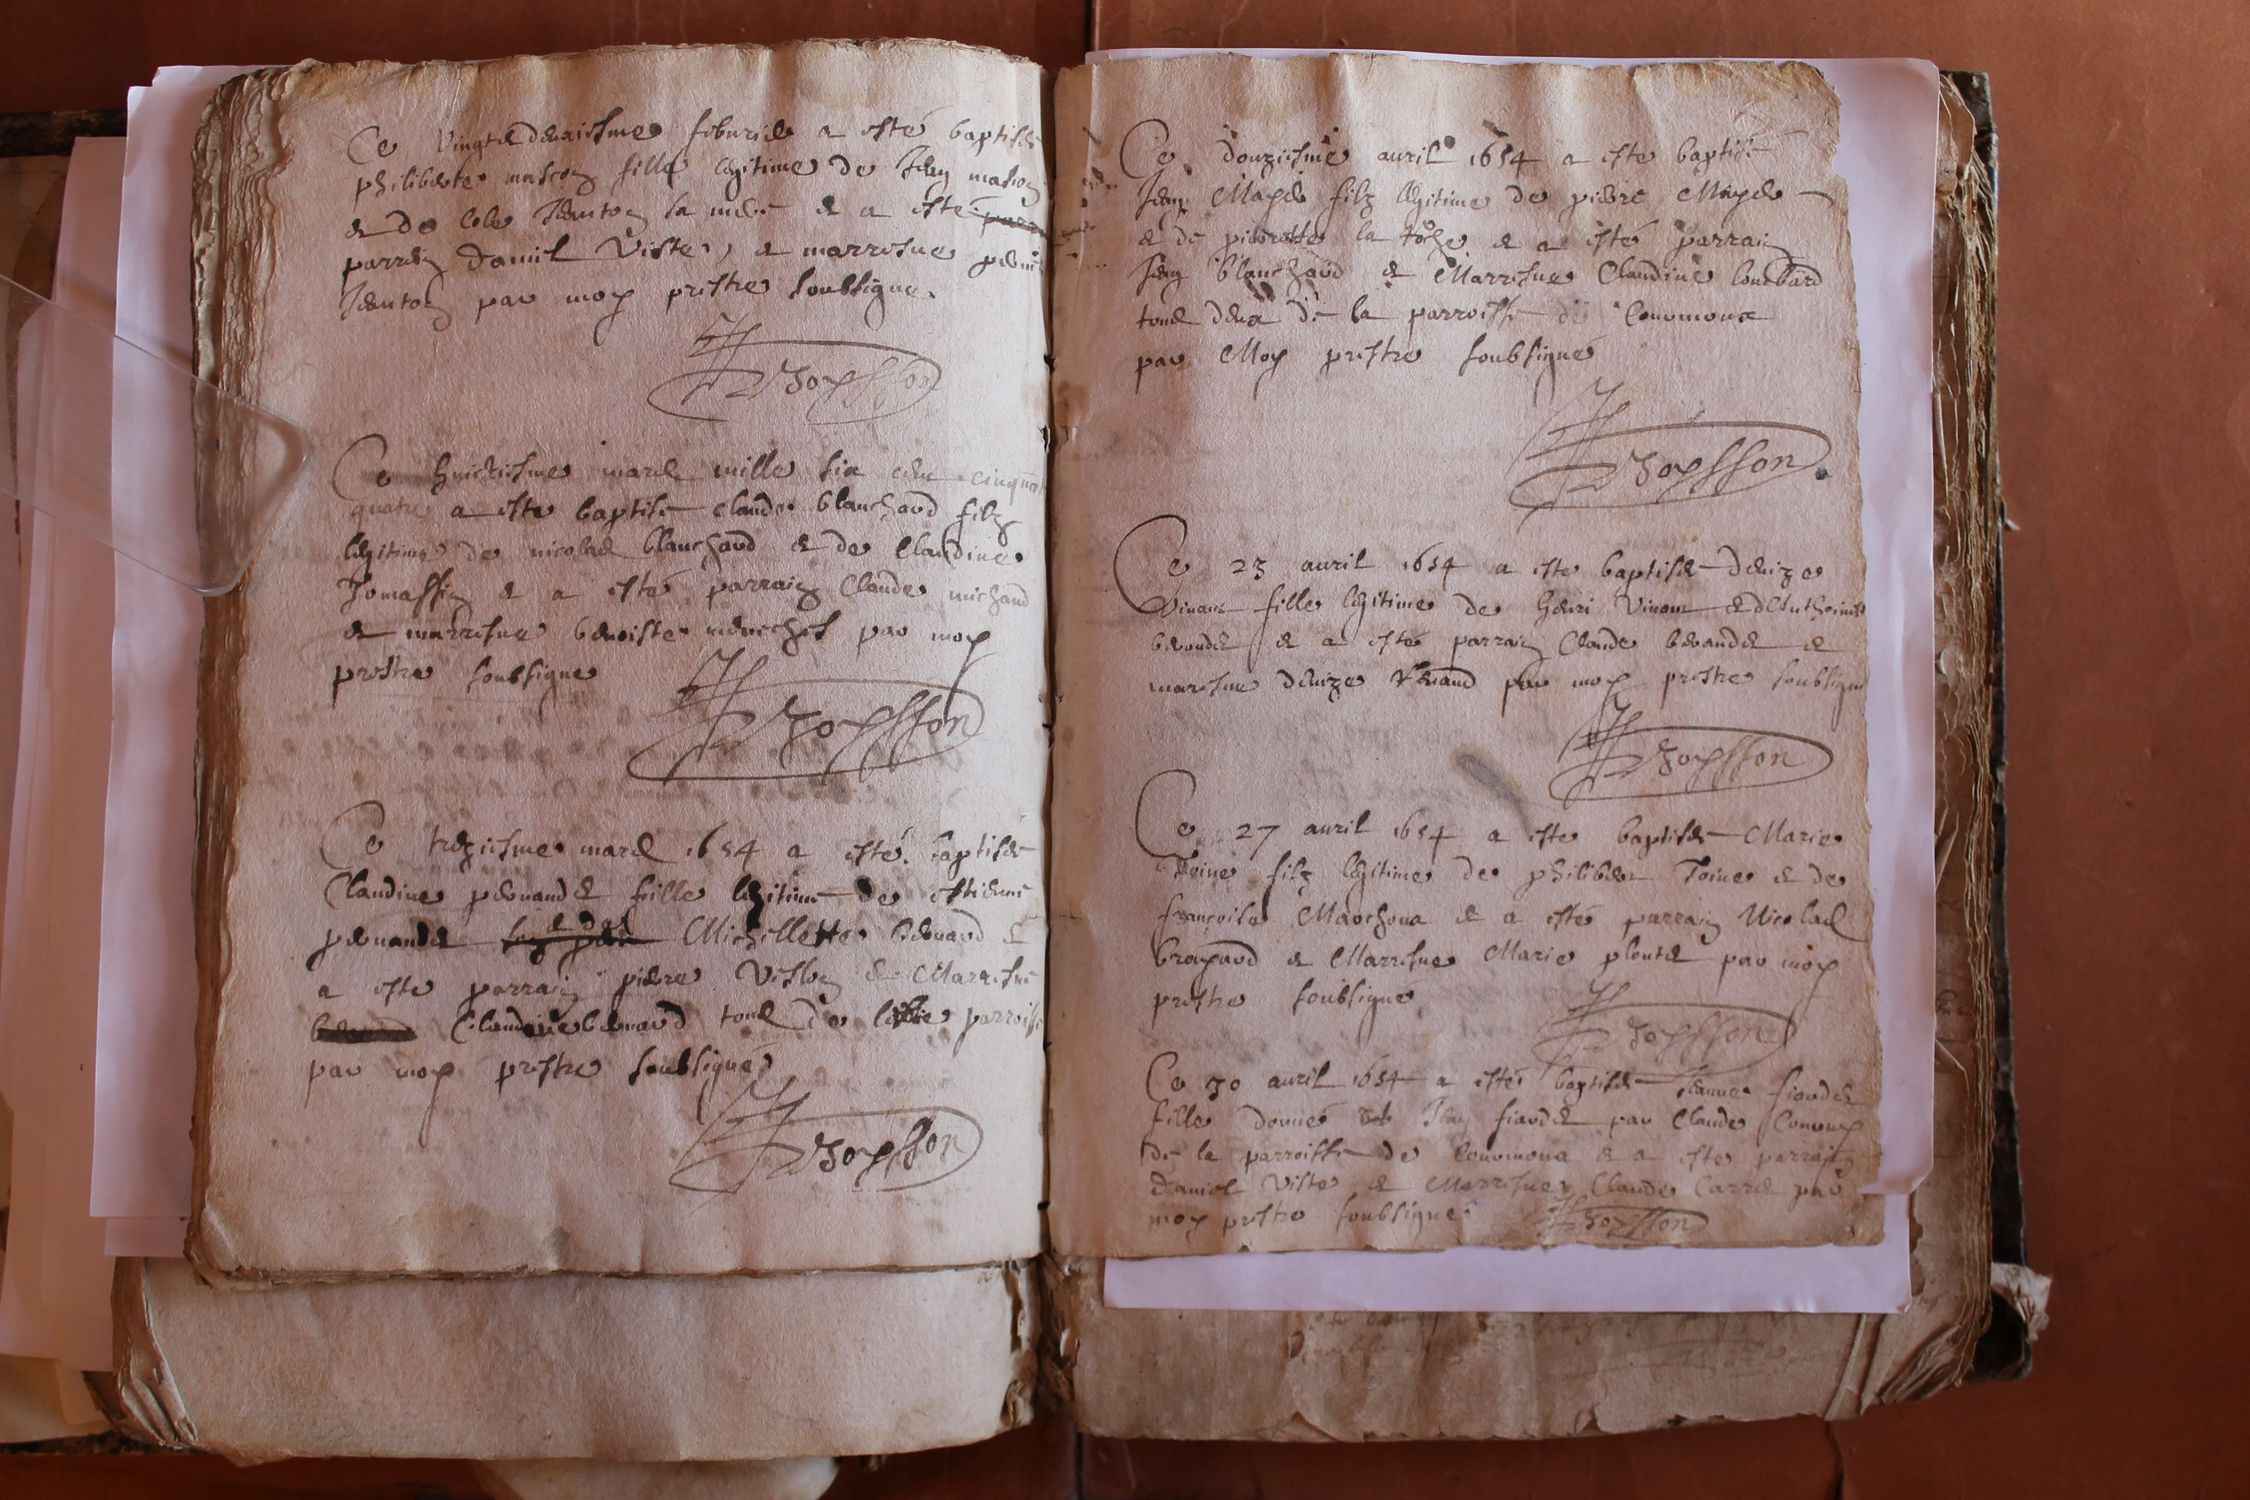 Ce vingtedeuxiesme feburier a esté baptisée
philiberte mascon fille legitime de Jean mascon
et de la mere et a esté
parrain Daniel Viste, et marresne
par moy prestre soubsigne.
Joysson
Ce huictiesme mars mille six cens cinquante
quatre a este baptise claude blanchard filz
legitime de nicolas blanchard et de Claudine
Tomassin et a esté parrain Claude michaud
et marresne benoiste par moy
prestre soubsigne
Joysson
Ce treziesme mars 1654 a esté baptisée
Claudine pernandet fille legitime de estienne
pernandet Michellette bernard et
a este parrain pierre et Marresne
Claudine bernard tous de parroisse
par moy prestre soubsigné
Joysson
Ce douziesme auril 1654 a este baptisé
Jean Mayet filz legitime de pierre Mayet
et de pierrette la et a esté parrain
Jean blanchard et Marresne Claudine lombard
tous deux de la parroisse de Cormoux
par Moy prestre soubsigné
Joysson
Ce 23 auril 1654 a este baptisée denize
fille legitime de henri et
et a esté parrain Claude et
maresne denize par moy prestre soubsigné
Joysson
Ce 27 auril 1654 a este baptisée Marie
filz legitime de philibert et de
françoise Marchoux et a esté parrain Nicolas
broyard et Marresne Marie par moy
prestre soubsigné
Joysson
Ce 30 auril 1654 a esté baptisée Jeanne fiardet
fille donné Jean fiardet par Claude
de la parroisse de Cormoux et a este parrain
Daniel Viste et Marresne Claude Carré par
moy prestre soubsigné Joysson